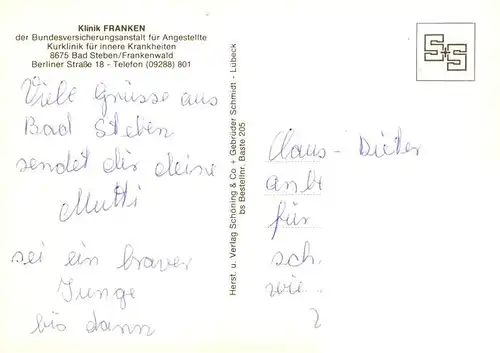 Klinik FRANKEN
der Bundesversicherungsanstalt für Angestellte
Kurklinik für innere Krankheiten
8675 Bad Steben/Frankenwald
Berliner Straße 18 - Telefon (09288) 801
Viele Grüsse aus
Bad Steben
sendet dir deine
Mutti
sei ein braver
Junge
bis dann
Herst. u. Verlag Schöning & Co + Gebrüder Schmidt - Lübeck
bs Bestellnr. Baste 205
Claus - Dieter
für
sch.